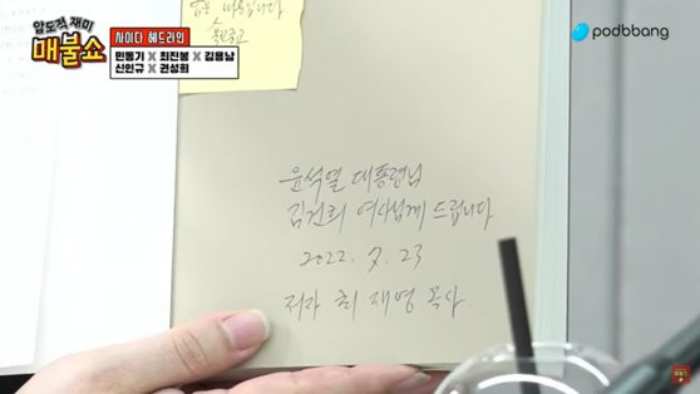 압도적 재미
매불쇼
사이다 헤드라인
민동기 X 최진봉 X 김용남
신인규 X 권성희
podbbang
윤석열 대통령님
김건희 여사님께 드립니다
2022. 7. 23
저자 최 재영 목사